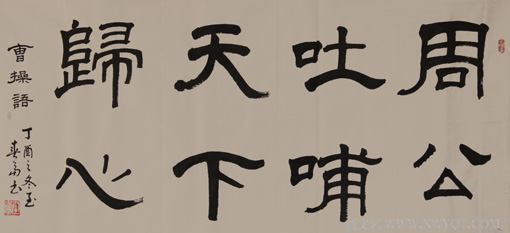 周公
吐哺
天下
歸心
曹操語
丁酉之冬玉
春富書